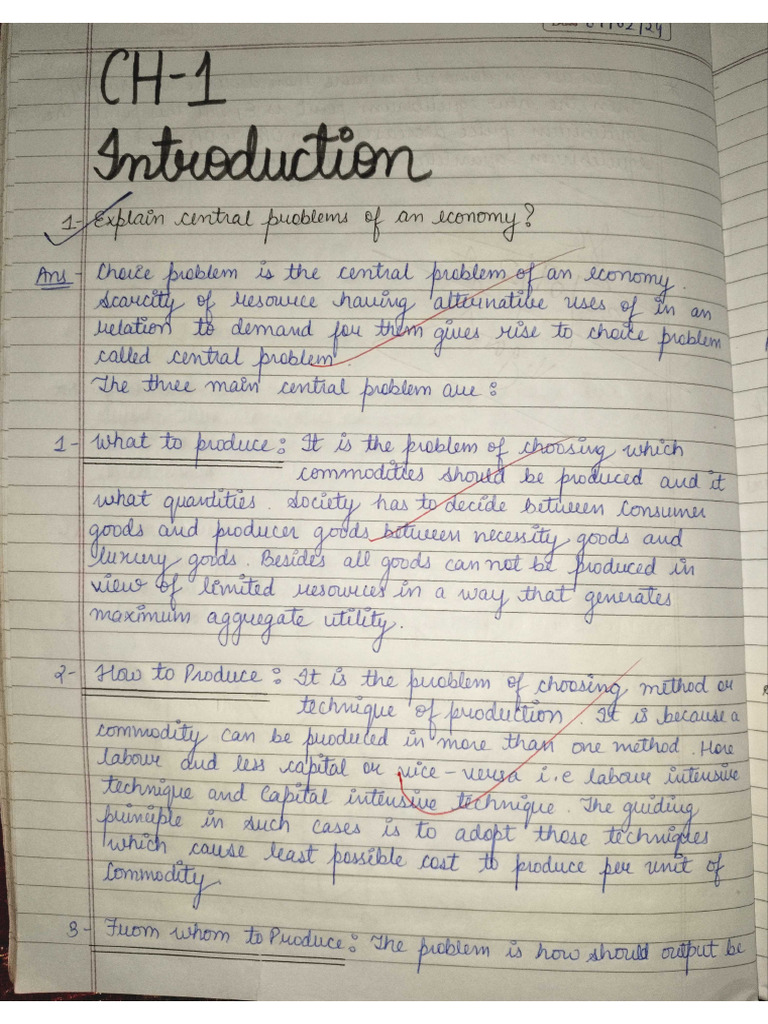 Date 01/02/24
CH-1
Introduction
1- Explain central problems of an economy?
Ans - Choice problem is the central problem of an economy.
Scarcity of resource having alternative uses of in an
relation to demand for them gives rise to choice problem
called central problem.
The three main central problem are :
1- What to produce : It is the problem of choosing which
commodities should be produced and it
what quantities. Society has to decide between Consumer
goods and producer goods between necessity goods and
luxury goods. Besides all goods can not be produced in
view of limited resources in a way that generates
maximum aggregate utility.
2- How to Produce : It is the problem of choosing method or
technique of production. It is because a
commodity can be produced in more than one method. More
labour and less capital or vice-versa i.e labour intensive
technique and Capital intensive technique. The guiding
principle in such cases is to adopt those techniques
which cause least possible cost to produce per unit of
Commodity.
3- From whom to Produce : The problem is how should output be